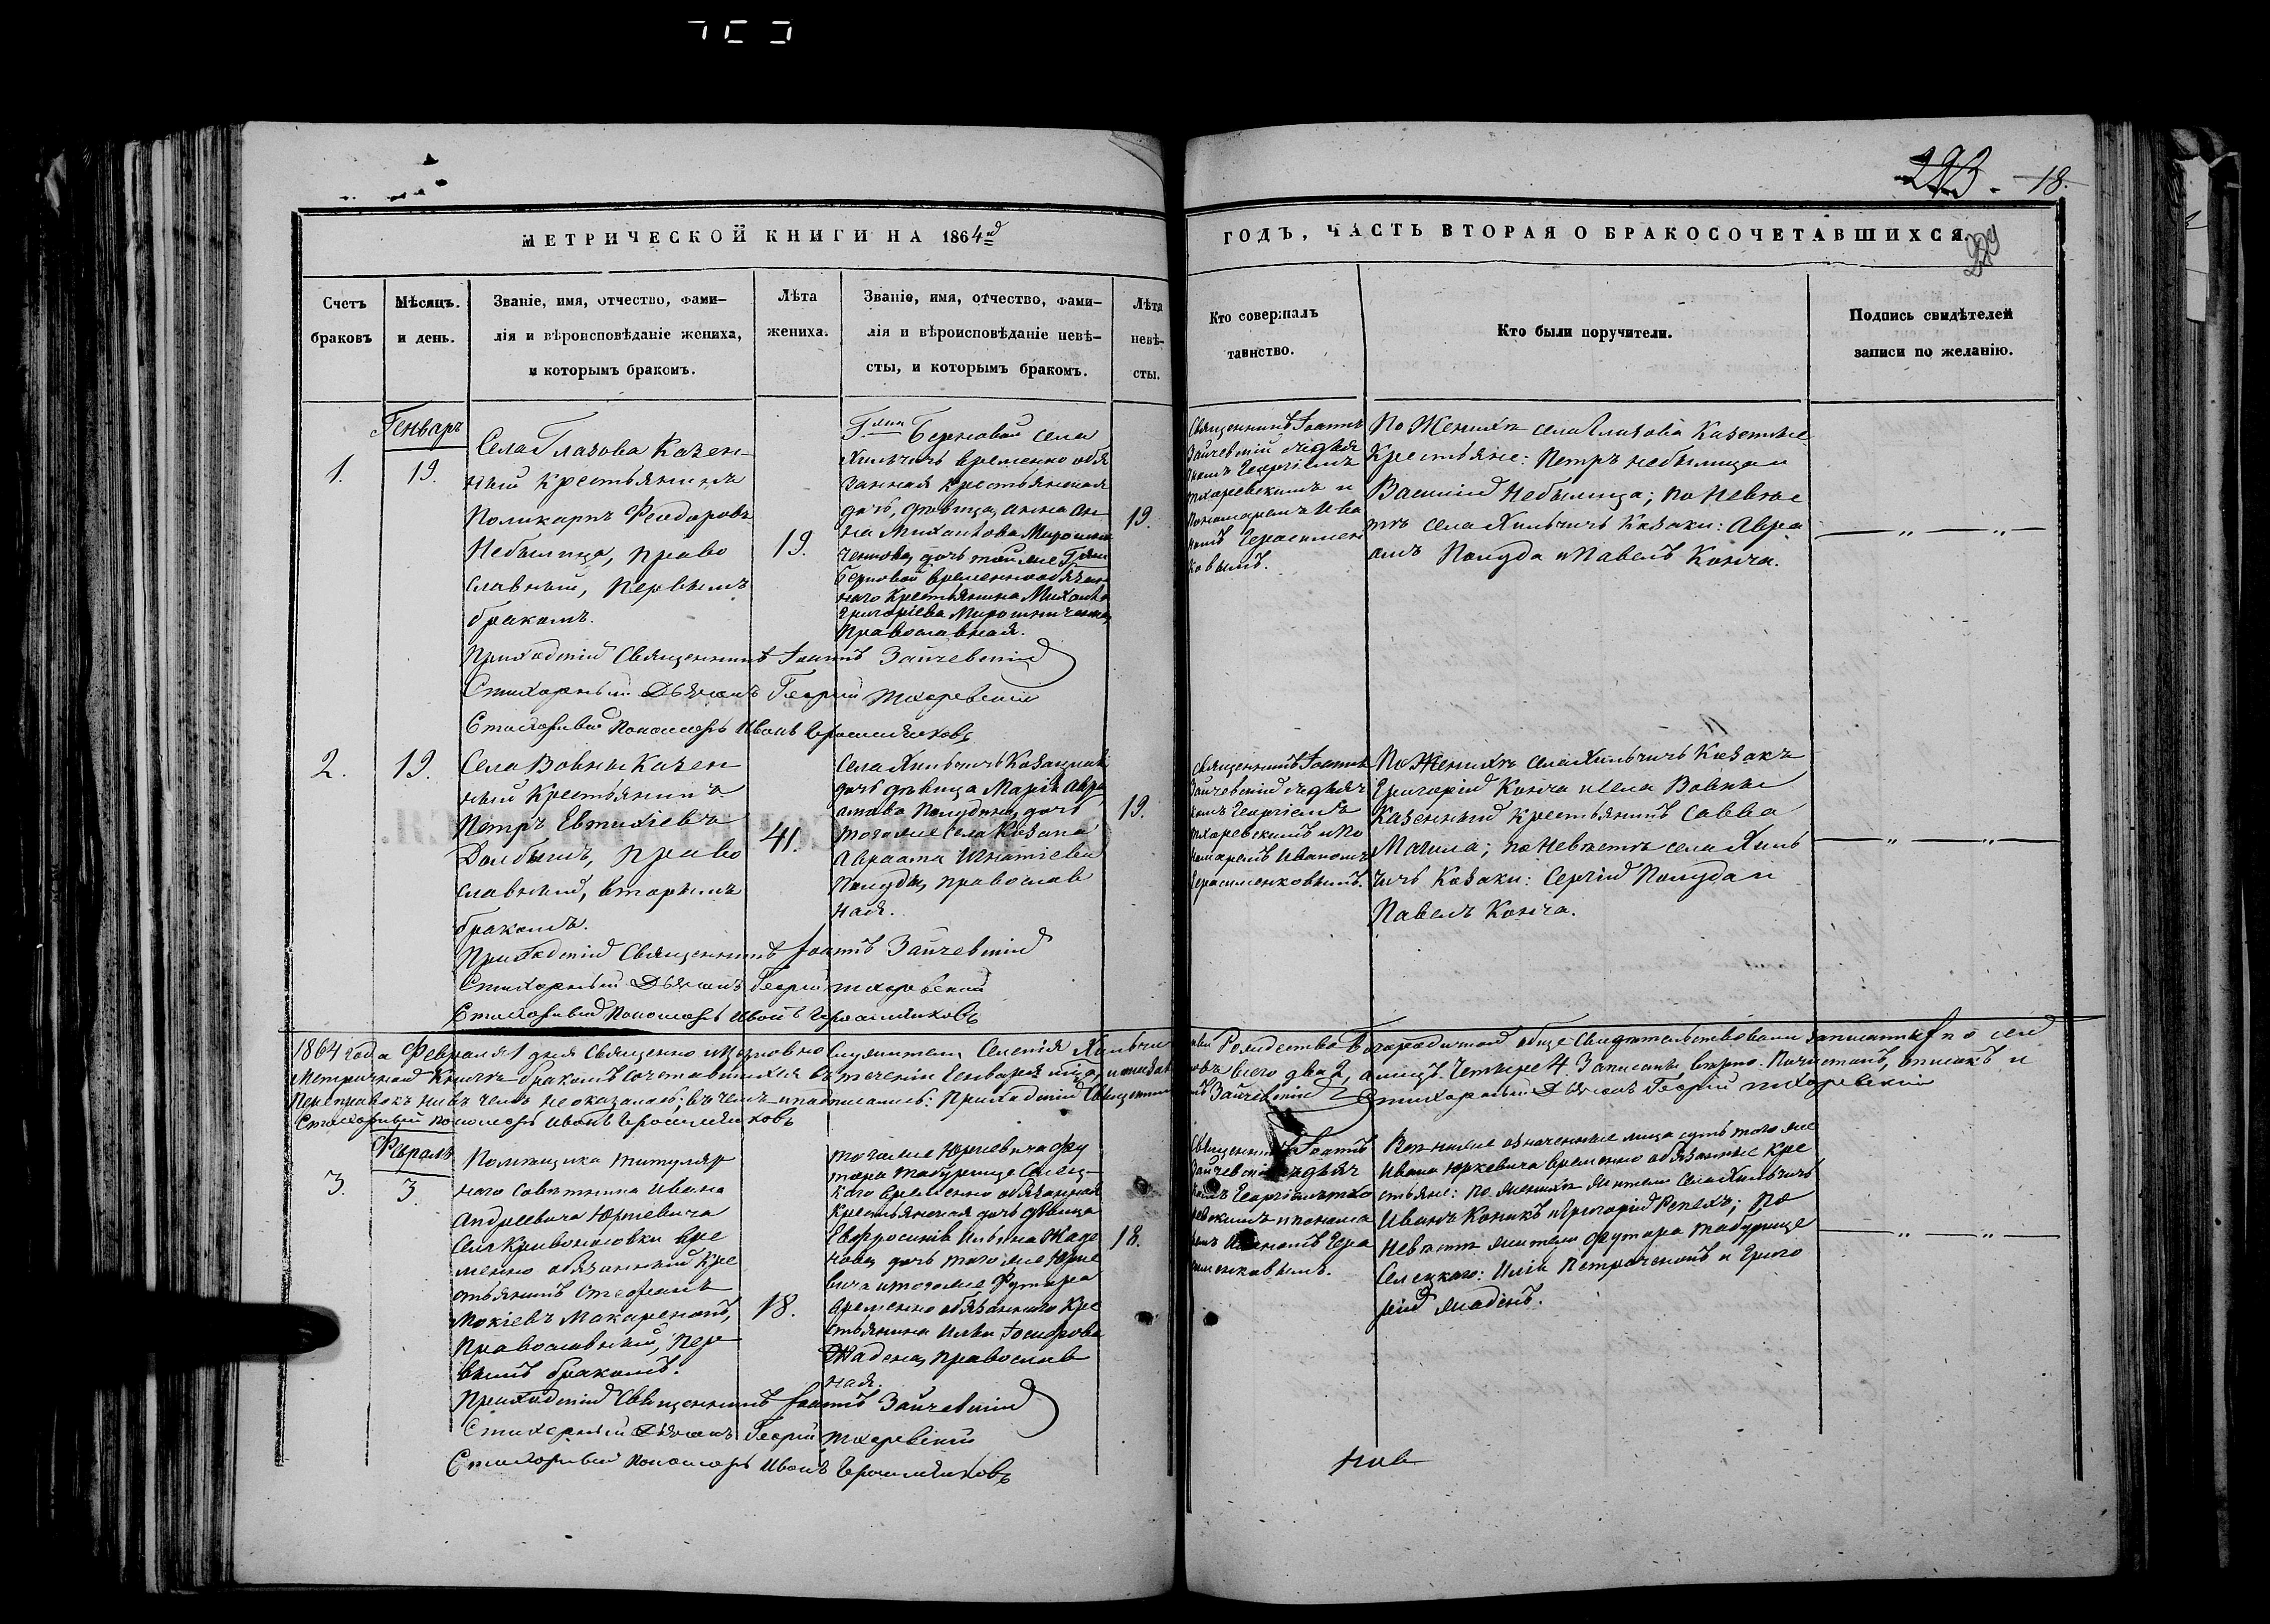 293. 18.
МЕТРИЧЕСКОЙ КНИГИ НА 1864й
ГОДЪ, ЧАСТЬ ВТОРАЯ О БРАКОСОЧЕТАВШИХСЯ.
Счетъ
браковъ
Мѣсяцъ.
и день.
Званіе, имя, отчество, фами-
лія и вѣроисповѣданіе жениха,
и которымъ бракомъ.
Лѣта
жениха.
Званіе, имя, отчество, фами-
лія и вѣроисповѣданіе невѣ-
сты, и которымъ бракомъ.
Лѣта
невѣ-
сты.
Кто совершалъ
таинство.
Кто были поручители.
Подпись свидѣтелей
записи по желанію.
Генварь
1.
19.
Села Глазова Казен-
ный крестьянинъ
Поликарпъ Феодоровъ
Небылица, право
славный, первымъ
бракомъ.
19.
Берновой села
Хильчичъ временно обя
занная крестьянская
дочь, дѣвица Анна
Михайлова Мирошни
ченкова, дочь той же
Берновой временнообязан
наго крестьянина Михаила
Григоріева Мирошниченка,
Православная.
19.
Священникъ Іоаннъ
Зайчевскій съ дьяч
комъ Георгіемъ
Тихоревскимъ и
Пономаремъ Ива
номъ Герасимен
ковымъ.
По Женихѣ села Глазова Казенные
Крестьяне: Петръ Небылица и
Василій Небылица; по Невѣс
тѣ села Хильчичъ Казаки: Авра
амъ Полуда и Павелъ Конча.
Приходскій Священникъ Іоаннъ Зайчевскій
Стихарный Дьячокъ Георгій Тихоревскій
Стихарный Пономарь Иванъ Герасименковъ
2.
19.
Села Вовны Казен
ный Крестьянинъ
Петръ Евтихіевъ
Долбышъ, право
славный, вторымъ
бракомъ.
41.
Села Хильчичъ Казацкая
дочь дѣвица Марія Авра
амова Полудина, дочь
тогоже села Казака
Авраама Игнатіева
Полуды, православ
ная.
19.
Священникъ Іоаннъ
Зайчевскій съ дьяч
комъ Георгіемъ
Тихоревскимъ и По
номаремъ Иваномъ
Герасименковымъ.
По Женихѣ села Хильчичъ Казакъ
Григорій Конча и села Вовны
Казенный крестьянинъ Савва
Могила; по Невѣстѣ села Хиль
чичъ Казаки: Сергій Полуда и
Павелъ Конча.
Приходскій Священникъ Іоаннъ Зайчевскій
Стихарный Дьячокъ Георгій Тихоревскій
Стихарный Пономарь Иванъ Герасименковъ
1864 года Февраля 1 дня Священно и церковно служители Селенія Хильчи
чъ Рождество Богородичной обще свидѣтельствовали записанныхъ по сей
Метричной Книгѣ бракомъ сочетавшихся въ теченіи Генваря м-ца,
всего два 2, а лицъ четыре 4. Записаны вѣрно. Почистокъ, описокъ и
Переправокъ ни въ чемъ не оказалось; въ чемъ и подписались: Приходскій Священникъ
Зайчевскій Стихарный Дьячокъ Георгій Тихоревскій
Стихарный Пономарь Иванъ Герасименковъ
Февраль
3.
3.
Помѣщика титуляр
наго Совѣтника Ивана
Андреевича Юркевича
Села Кривоносовки вре
менно обязанный кре
стьянинъ Стефанъ
Мокіевъ Макаренокъ,
Православный, пер
вымъ бракомъ.
18.
тогоже Юркевича Фу
тора Табурище Селец-
каго временно обязанная
Крестьянская дочь дѣвица
Евфросинія Ильина Жаде
нова, дочь тогоже Юрке
вича и тогоже Футора
временно обязаннаго кре
стьянина Ильи Іосифова
Жадена, православ
ная.
18.
Священникъ Іоаннъ
Зайчевскій съ дьяч
комъ Георгіемъ Тихо
ревскимъ и понома
ремъ Иваномъ Гера
сименковымъ.
Всѣ ниже означенные лица суть того же
Ивана Юркевича временно обязанные кре
стьяне: по женихѣ жители Села Хильчичъ
Иванъ Коникъ и Григорій Репехъ; По
Невѣстѣ жители футора Табурище
Селецкаго: Илія Петраченокъ и Григо
рій Жаденъ.
Приходскій Священникъ Іоаннъ Зайчевскій
Стихарный Дьячокъ Георгій Тихоревскій
Стихарный Пономарь Иванъ Герасименковъ